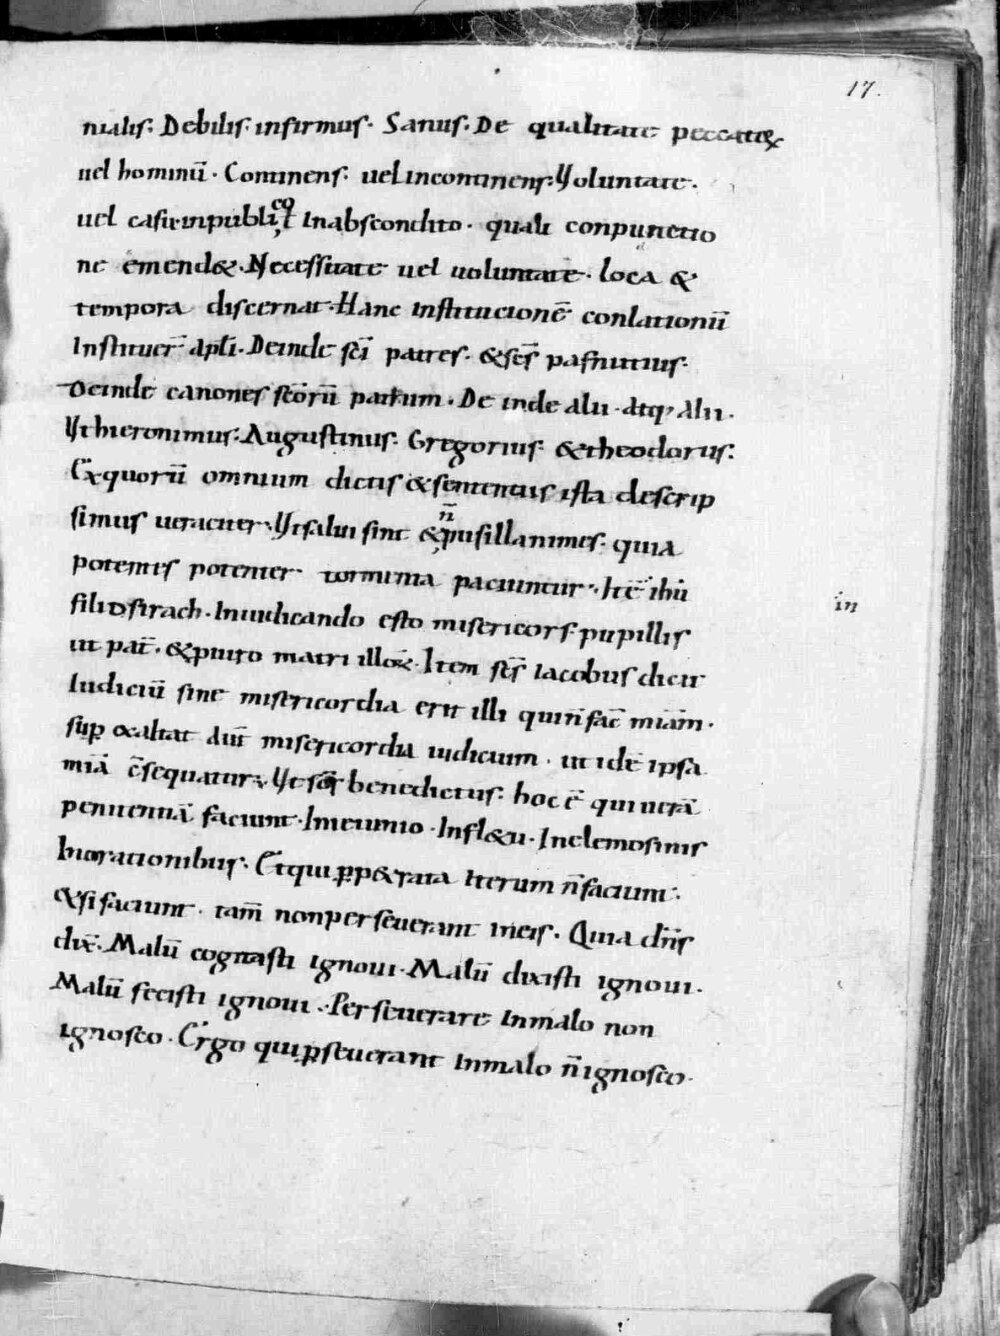 17.
nialis. Debilis. infirmus. Sanus. De qualitate peccatoꝝ
uel hominū. Continens. uel incontinens. Voluntate.
uel casu. inpublico ł inabscondito. quali conpunctio
ne emend&. Necessitate uel uoluntate. loca &
tempora discernat. Hanc institucionē conlationū
Instituer̄ apłi. Deinde sc̄i patres. & sc̄s pafnutius.
Deinde canones sc̄orū patrum. De inde alii. atq; alii.
Vt hieronimus. Augustinus. Gregorius. & theodorus.
Ex quorū omnium dictis & sententiis ista descrip
simus ueraciter. Vt salui sint & n̄ pusillanimes. quia
potentes potenter tormenta paciuntur. Itē ihū
filii sirach. Iniudicando esto misericors pupillis
in
ut pat̄. & puiro matri illoꝝ. Item sc̄s Iacobus dicit
Iudiciū sine misericordia erit illi qui n̄ fac̄ miām.
sup exaltat aut̄ misericordia iudicium. ut idē ipsa
miā c̄sequatur. Vt sc̄s benedictus. hoc ē qui uerā
penitentiā faciunt. Inieiunio. Infl&u. Inelemosinis
Inorationibus. Et qui ꝑp&rata iterum n̄ faciunt.
& si faciunt. tam̄ non perseuerant in eis. Quia dn̄s
dix̄. Malū cogitasti ignoui. Malū dixisti ignoui.
Malū fecisti ignoui. Perseuerare inmalo non
ignosco. Ergo qui ꝑseuerant inmalo n̄ ignosco.